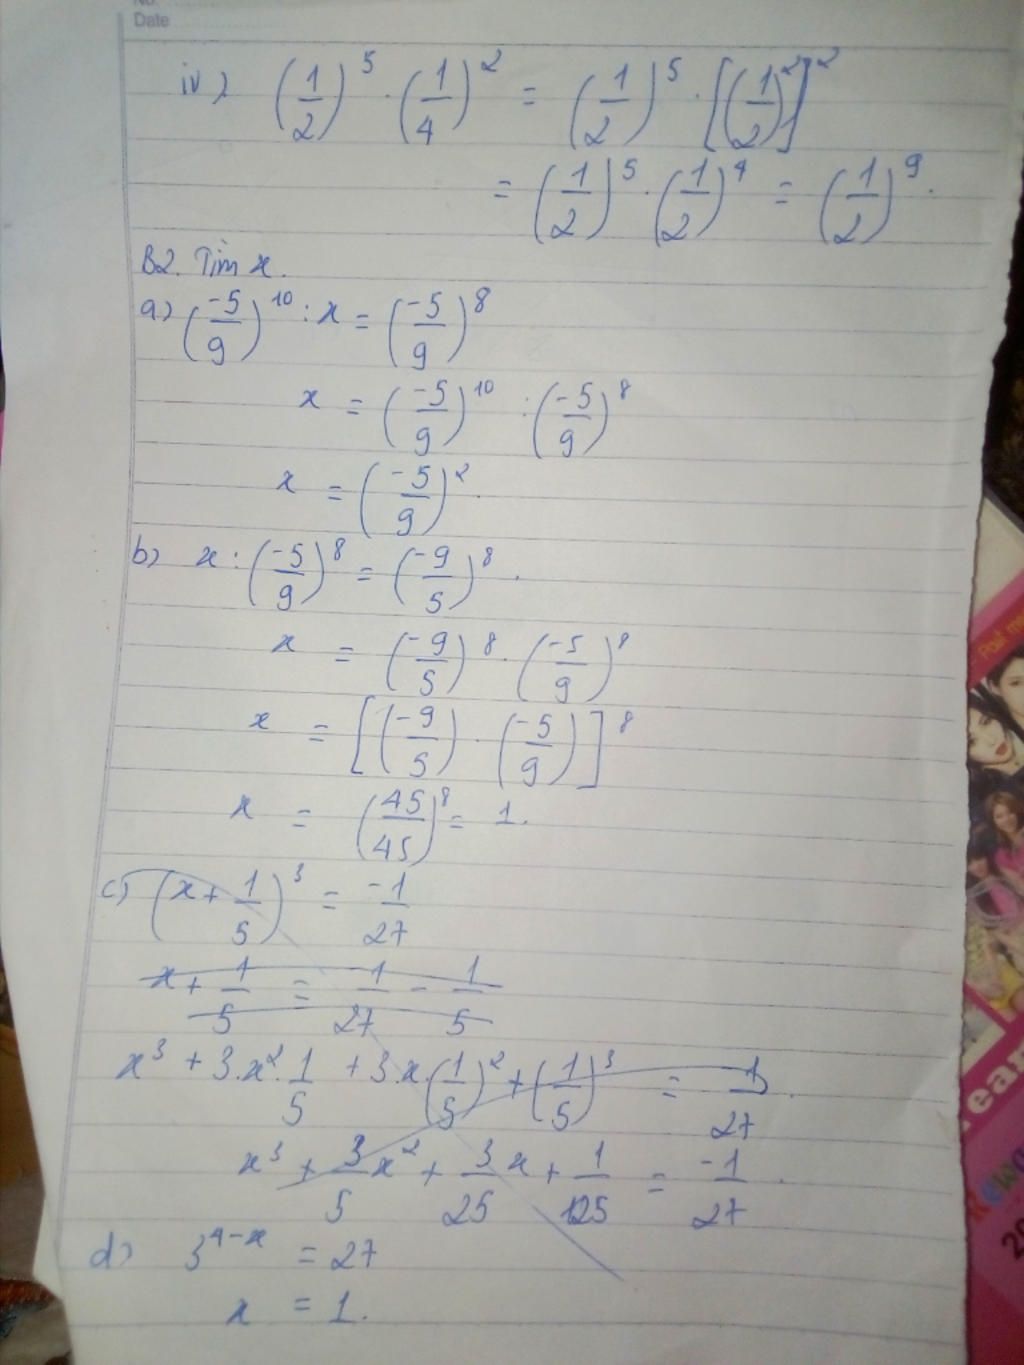 No.
Date
iv) (1/2)^5 . (1/4)^2 = (1/2)^5 . [(1/2)^2]^2
= (1/2)^5 . (1/2)^4 = (1/2)^9.
B2. Tìm x.
a) (-5/9)^10 : x = (-5/9)^8
x = (-5/9)^10 : (-5/9)^8
x = (-5/9)^2.
b) x : (-5/9)^8 = (-9/5)^8.
x = (-9/5)^8 . (-5/9)^8
x = [(-9/5) . (-5/9)]^8
x = (45/45)^8 = 1.
c) (x + 1/5)^3 = -1/27
x + 1/5 = 1/27 - 1/5
x^3 + 3.x^2.1/5 + 3.x(1/5)^2 + (1/5)^3 = -1/27.
x^3 + 3/5 x^2 + 3/25 x + 1/125 = -1/27.
d) 3^4-x = 27
x = 1.